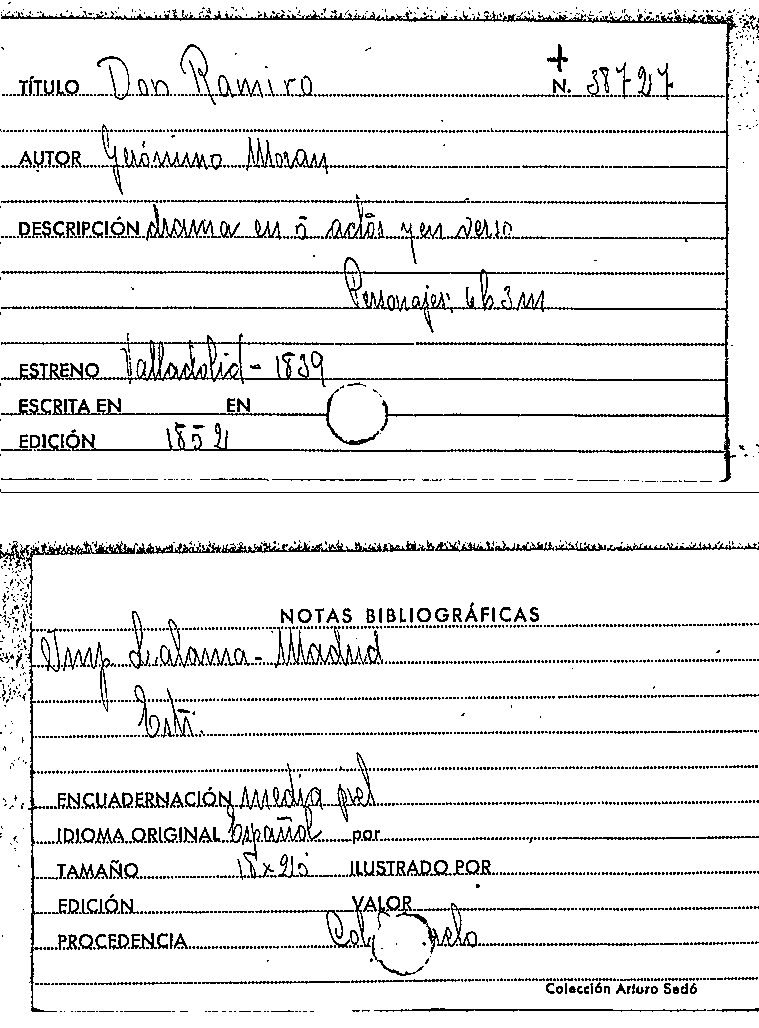 +
TÍTULO Don Ramiro N. 38727
AUTOR Gerónimo Moran
DESCRIPCIÓN drama en 5 actos y en verso
Personajes: 6 h. 3 m
ESTRENO Valladolid - 1839
ESCRITA EN EN
EDICIÓN 1852
NOTAS BIBLIOGRÁFICAS
Imp Lalama - Madrid
ENCUADERNACIÓN media piel
IDIOMA ORIGINAL Español por
TAMAÑO 18x25 ILUSTRADO POR
EDICIÓN VALOR
PROCEDENCIA
Colección Arturo Sedó